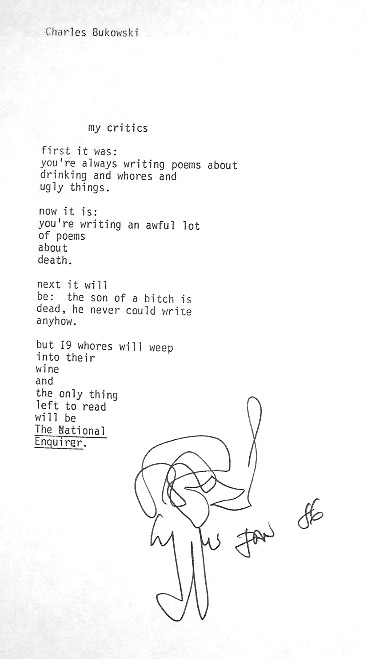 Charles Bukowski
my critics
first it was:
you're always writing poems about
drinking and whores and
ugly things.
now it is:
you're writing an awful lot
of poems
about
death.
next it will
be:  the son of a bitch is
dead, he never could write
anyhow.
but 19 whores will weep
into their
wine
and
the only thing
left to read
will be
The National
Enquirer.
JAN 86